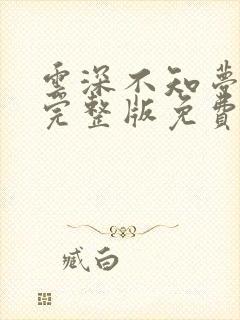 雲深不知夢
完整版免費
臧白